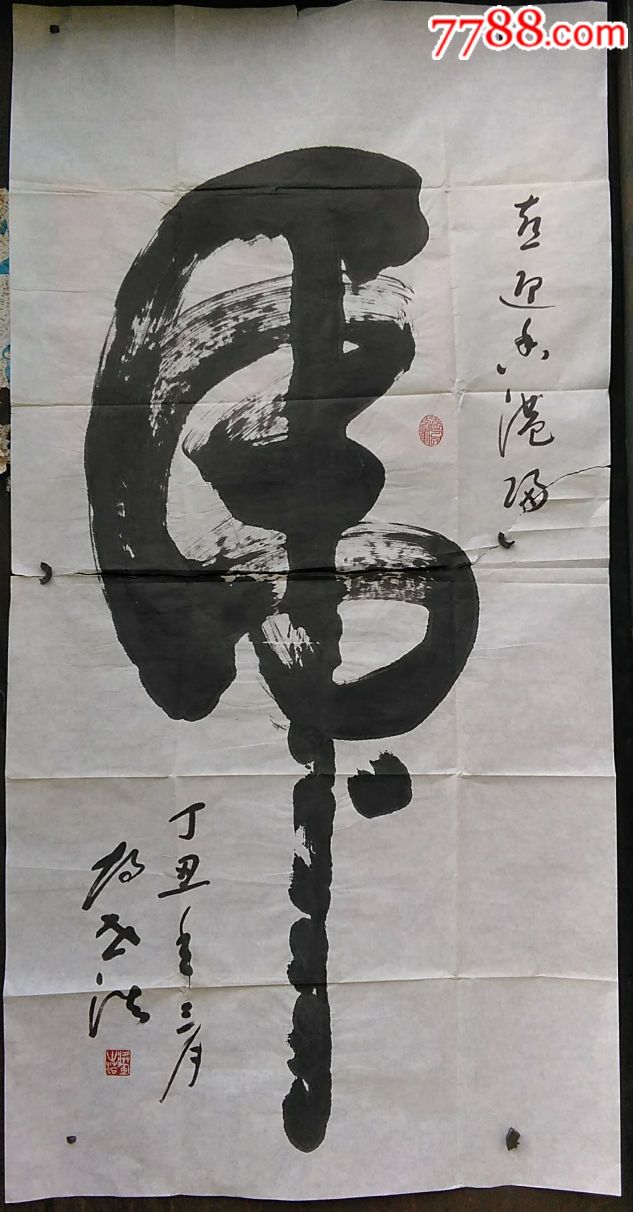 7788.com
喜迎香港归
虎
丁丑年三月